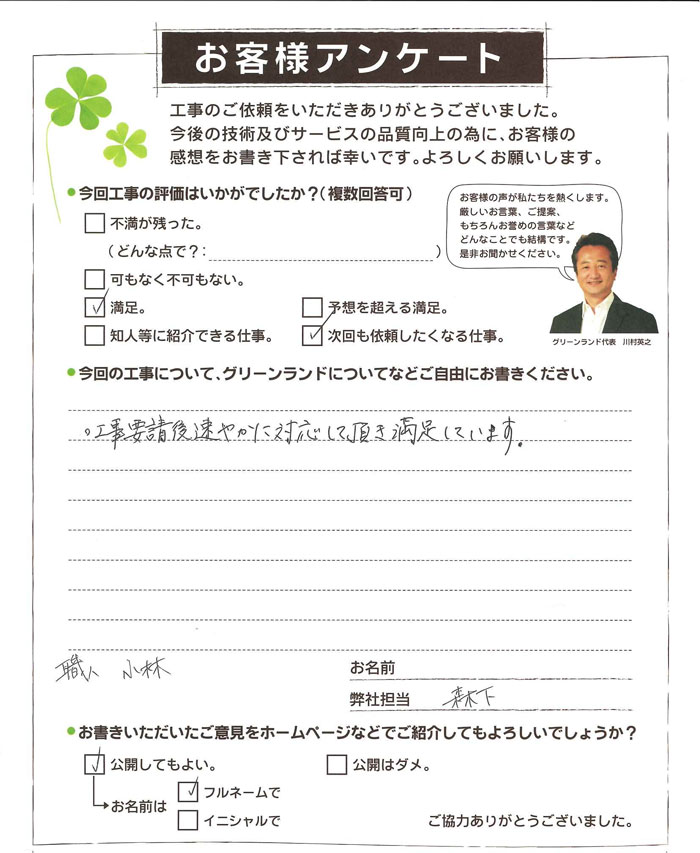 お客様アンケート
工事のご依頼をいただきありがとうございました。
今後の技術及びサービスの品質向上の為に、お客様の
感想をお書き下されば幸いです。よろしくお願いします。
●今回工事の評価はいかがでしたか?(複数回答可)
お客様の声が私たちを熱くします。
厳しいお言葉、ご提案、
もちろんお誉めの言葉など
どんなことでも結構です。
是非お聞かせください。
不満が残った。
(どんな点で?: )
可もなく不可もない。
満足。 予想を超える満足。
知人等に紹介できる仕事。 次回も依頼したくなる仕事。
グリーンランド代表 川村英之
●今回の工事について、グリーンランドについてなどご自由にお書きください。
。工事要請後速やかに対応して頂き満足しています。
職人 小林
お名前
弊社担当 森下
●お書きいただいたご意見をホームページなどでご紹介してもよろしいでしょうか?
公開してもよい。 公開はダメ。
お名前は フルネームで
イニシャルで
ご協力ありがとうございました。